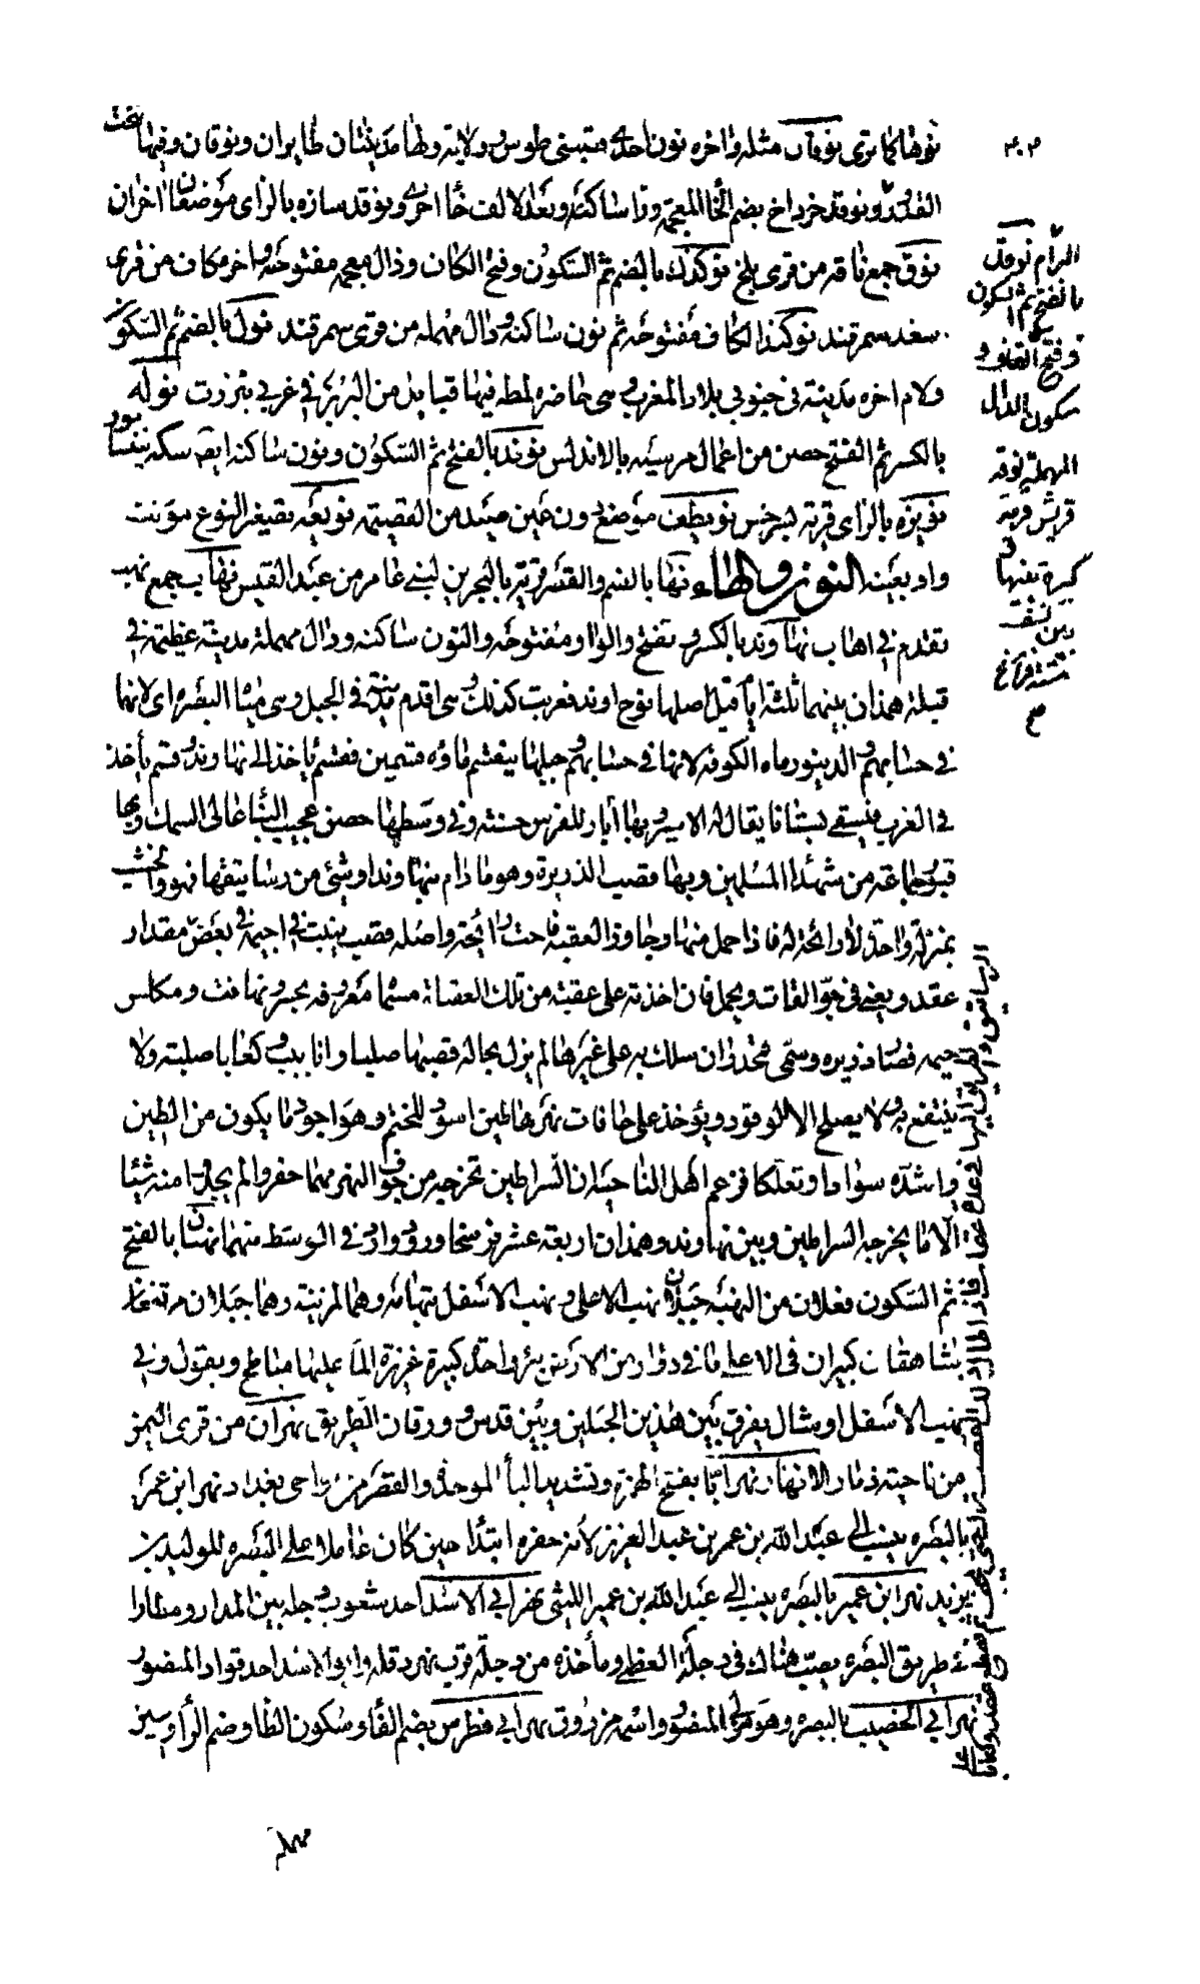 نوها كما ترى نوقان مثله واخره نون احدى قصبتي طوس ولاية ولها مدينتان طابران ونوقان وفيها تحت
ونوقد خرداخ بضم الخا المعجمة ورا ساكنة وبعد الالف خا اخرى ونوقد سازه بالزاى موضعان اخران
نوق جمع ناقه من قرى بلخ نوكذك بالضم ثم السكون وفتح الكاف وذال معجمه مفتوحه واخره كاف من قرى
سغد سمرقند نوكند الكاف مفتوحه ثم نون ساكنه ودال مهمله من قرى سمرقند نول بالضم ثم السكون
ولام اخره مدينة فى جنوبي بلاد المغرب هى حاضره لمطه فيها قبايل من البربر فى غربي تيزرت نولة
بالكسر ثم الفتح حصن من اعمال مرسيه بالاندلس نوند بالفتح ثم السكون ونون ساكنه ايضا سكه بنيسابور
نويزه بالزاى قرية بسرخس نويطف موضع دون عين صيد من القصيمه نويعه تصغير النوع مونث
واد بعينه النون والهاء نها بالضم والقصر قرية بالبحرين لبني عامر من عبد القيس نهاب جمع نهب
تقدم في اهاب نهاوند بالكسر وتفتح والواو مفتوحه والنون ساكنه ودال مهملة مدينة عظيمة في
قبلة همذان بينهما ثلثة ايام قيل اصلها نوح اوند فعربت كذلك وهى اقدم مدينة فى الجبل وهى ماه البصره اى لانها
في حسابهم والدينور ماه الكوفه لانها في حسابهم وجبلها ينقسم ماؤه قسمين فقسم ياخذ الى نهاوند وقسم يأخذ
فى الغرب فيسقي بستانا يقال له الاميرى وبها آثار للفرس حسنة وفي وسطها حصن عجيب البناء عالى السمك وبها
قبور جماعة من شهداء المسلمين وبها قصب الذريرة وهو ما دام بنهاوند او شئ من رساتيقها فهو والخشب
بمنزلة واحدة لا رائحة له فاذا حمل منها وجاوز العقبه فاحت رائحته واصله قصب ينبت في اجمة في بعض مقدار
عقد ويعبى فى جوالقات ويحمل فان اخذ به على عقبة من تلك العقاب مسماة معروفه
فصار ذريره وسمى قمحة وان سلك به على غيرها لم يزل بحاله قصبا صليبا وانابيب وكعابا صلبة ولا
ينتفع به ولا يصلح الا للوقود ويؤخذ على حافات نهرها طين اسود للختم وهو اجود ما يكون من الطين
واشده سوادا وتعلكا فزعم اهل الناحية ان السراطين تخرجه من جوف النهر مهما حفروا لم يجدوا منه شيئا
الا ما يخرجه السراطين وبين نهاوند وهمذان اربعة عشر فرسخا وروذراور فى الوسط منهما نهبان بالفتح
ثم السكون فعلان من النهب جبلان نهب الاعلى ونهب الاسفل بتهامة وهما لمزينة وهما جبلان مرتفعان
شاهقان كبيران فى الاعلى ماء في دوار من الارض بئر واحدة كبيرة غزيرة الماء عليها مباطخ وبقول وفي
نهب الاسفل اوشال يفرق بين هذين الجبلين وبين قدس وورقان الطريق نهران من قرى اليمن
من ناحية ذمار الانهار نهر ابا بفتح الهمزة وتشديد الباء الموحدة والقصر من نواحى بغداد نهر ابن عمر
بالبصره ينسب الى عبد الله بن عمر بن عبد العزيز لانه حفره ابتدا حين كان عاملا على البصره للوليد بن
يزيد نهر ابن عمير بالبصره ينسب الى عبد الله بن عمير الليثى نهر ابي الاسد احد شعوب دجله بين المذار ومطارا
فى طريق البصره يصب هناك فى دجلة العظمى ومأخذه من دجلة قرب نهر دقله وابو الاسد احد قواد المنصور
نهر ابي الخصيب بالبصره وهو مولى المنصور واسمه مرزوق نهر ابي فطرس بضم الفاء وسكون الطاء وضم الراء وسين
مهملة
٣٠٣
نوقد
بالفتح ثم السكون
وفتح القاف و
سكون الدال
المهملة نوقد
قريش قرية
كبيرة بينها و
بين نسف
ستة فراسخ